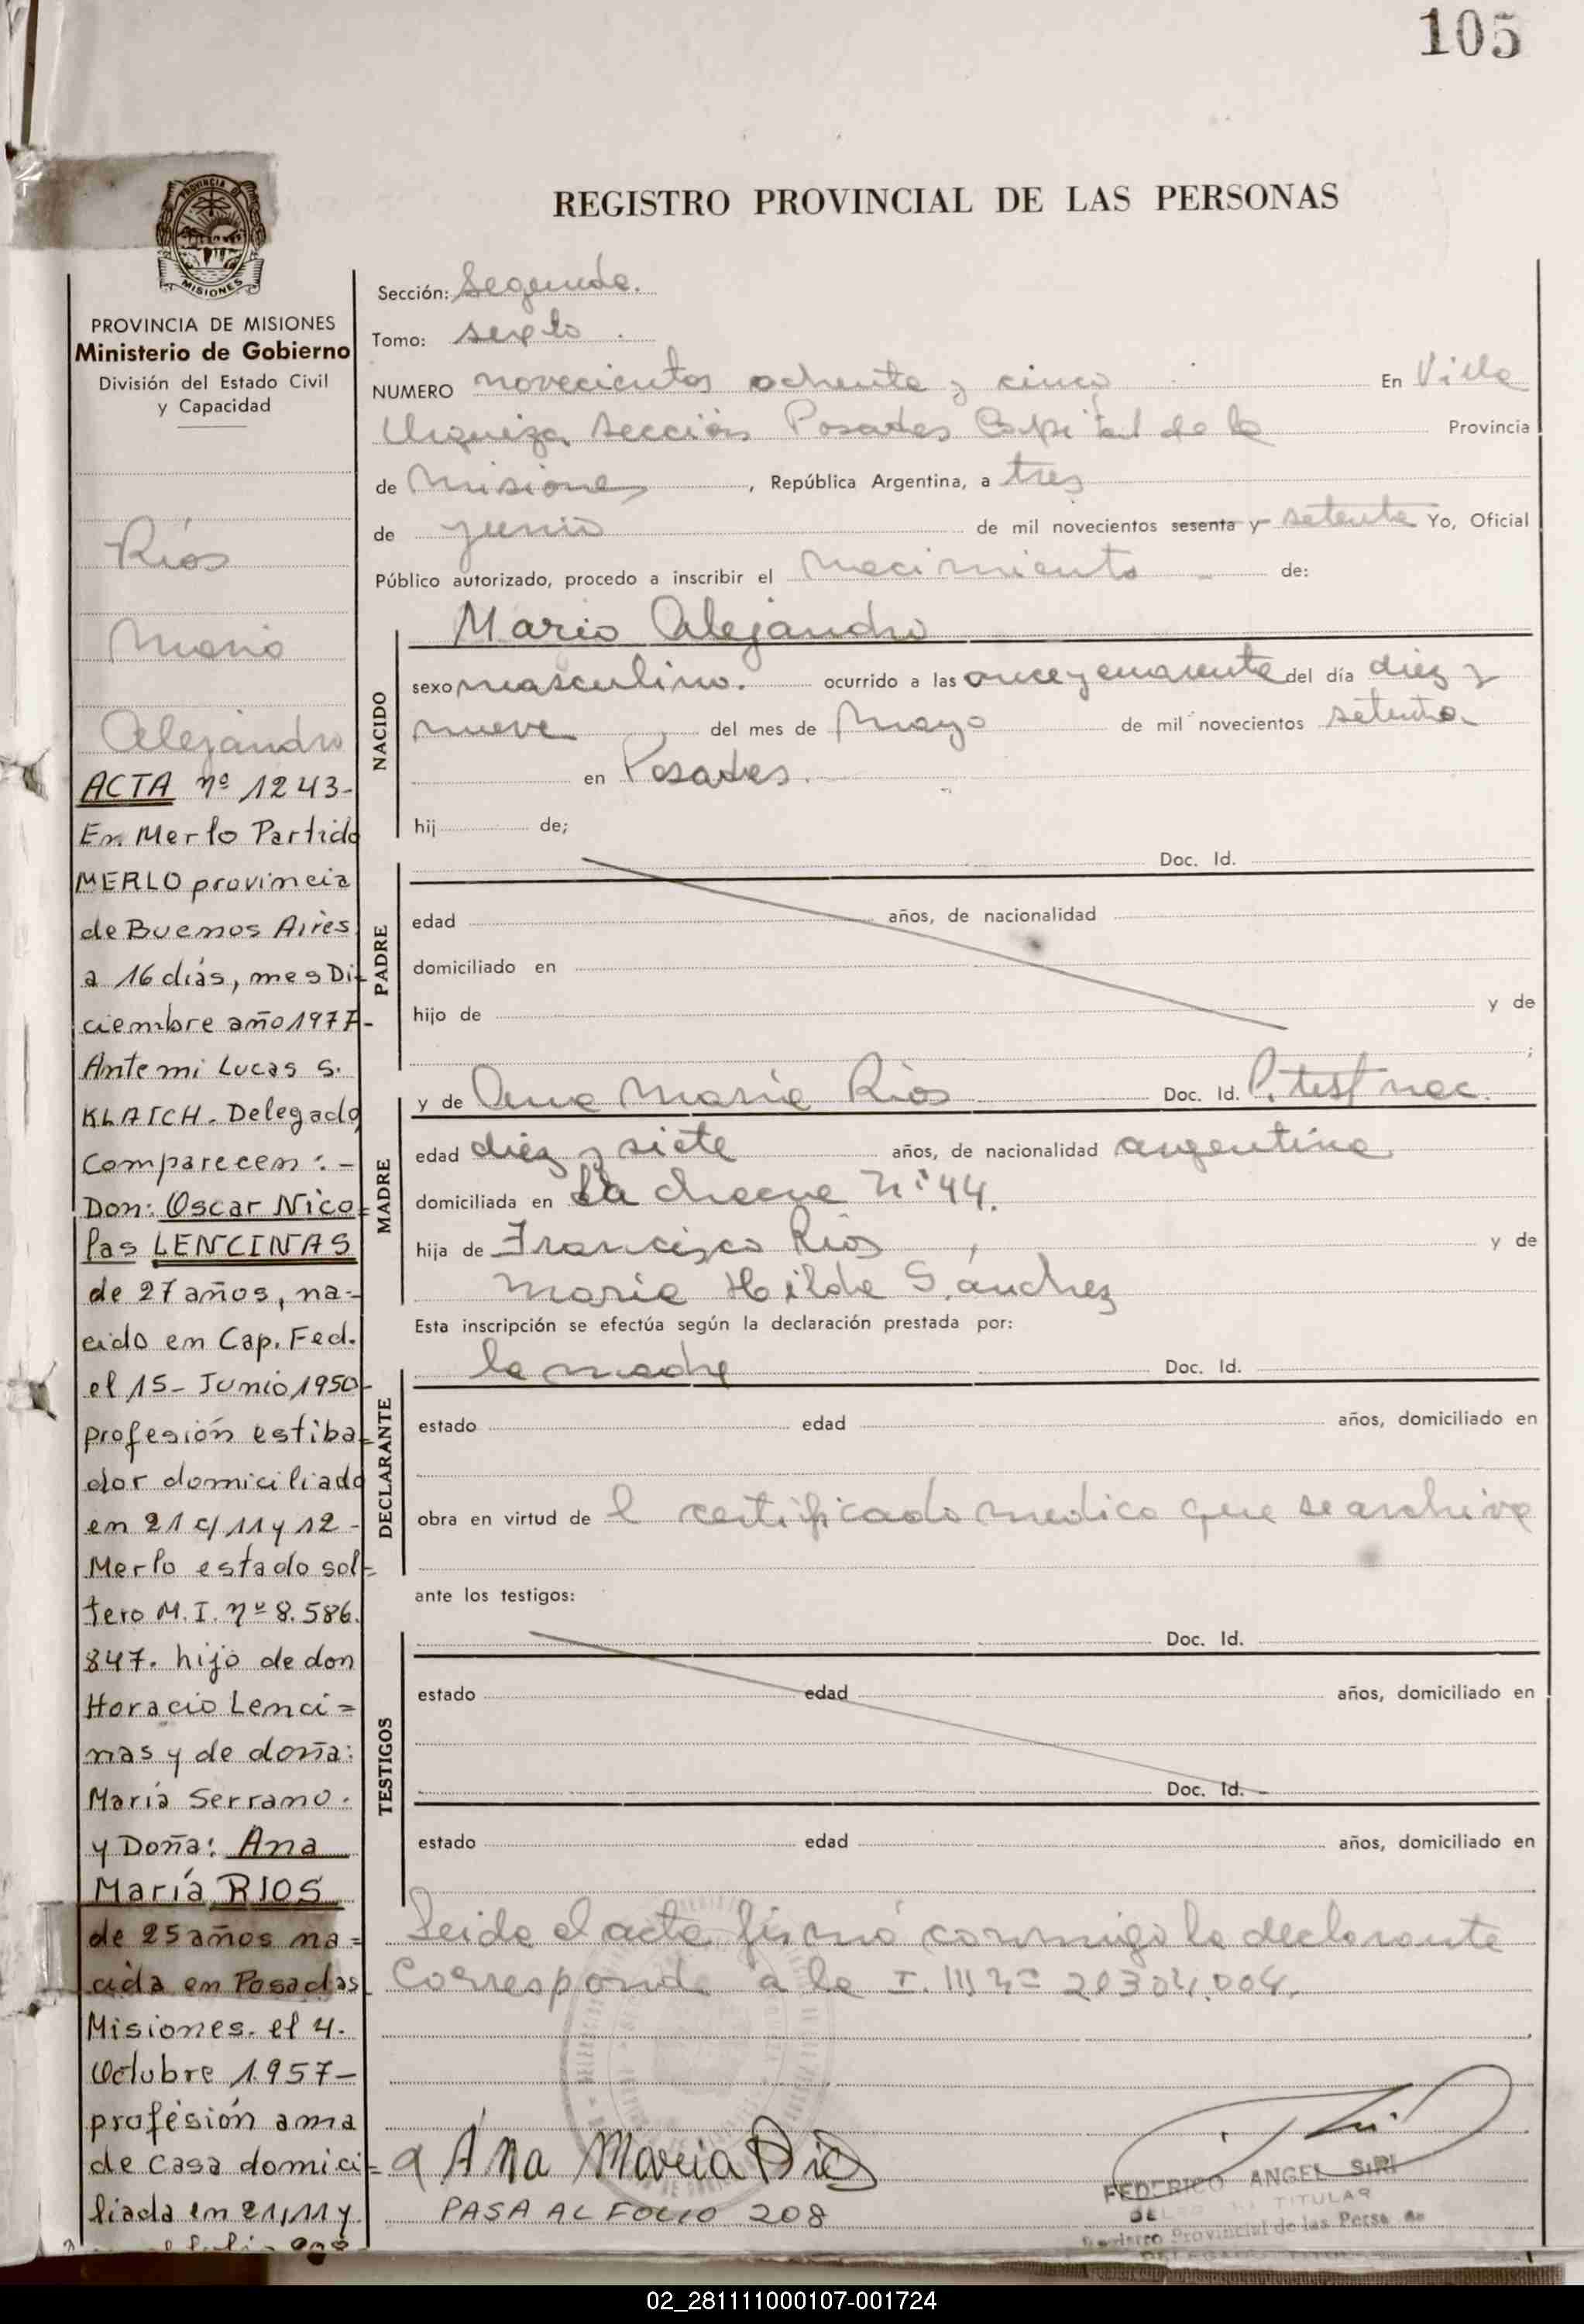 105
PROVINCIA DE
MISIONES
PROVINCIA DE MISIONES
Ministerio de Gobierno
División del Estado Civil
y Capacidad
Ríos
Mario
Alejandro
ACTA nº 1243-
En Merlo Partido
MERLO provincia
de Buenos Aires
a 16 días, mes Di-
ciembre año 1977-
Ante mi Lucas S.
KLAICH. Delegado,
Comparecen: -
Don: Oscar Nico-
las LENCINAS
de 27 años, na-
cido en Cap. Fed.
el 15- Junio, 1950-
profesión estiba-
dor domiciliado
en 21 c/ 11 y 12-
Merlo estado sol-
tero M. I. nº 8.586.
847. hijo de don
Horacio Lenci=
nas y de doña:
María Serrano.
y Doña: Ana
María RIOS
de 25 años na=
cida en Posadas
Misiones. el 4.
Octubre 1.957-
profesión ama
de casa domici=
liada en 21, 11 y
REGISTRO PROVINCIAL DE LAS PERSONAS
Sección: Segunda.
Tomo: sexto
NUMERO novecientos ochenta y cinco En Villa
Urquiza sección Posadas Capital de la Provincia
de Misiones, República Argentina, a tres
de junio de mil novecientos sesenta y setenta Yo, Oficial
Público autorizado, procedo a inscribir el nacimiento de:
NACIDO
Mario Alejandro
sexo masculino. ocurrido a las once y cuarenta del día diez y
nueve del mes de Mayo de mil novecientos setenta
en Posadas.
hij de;
PADRE
Doc. Id.
edad años, de nacionalidad
domiciliado en
hijo de y de
;
MADRE
y de Ana María Ríos Doc. Id. P. test nac.
edad diez y siete años, de nacionalidad argentina
domiciliada en La checue Nº 44.
hija de Francisco Ríos y de
María Hilda Sánchez
Esta inscripción se efectúa según la declaración prestada por:
DECLARANTE
la madre Doc. Id.
estado edad años, domiciliado en
obra en virtud de l certificado medico que se archiva
ante los testigos:
TESTIGOS
Doc. Id.
estado edad años, domiciliado en
Doc. Id.
estado edad años, domiciliado en
Leida el acta firmó conmigo la declarante
Corresponde a la
Ana Maria Rios
PASA AL FOLIO 208
FEDERICO ANGEL SIRI
TITULAR
Registro Provincial de las Perso
02_281111000107-001724